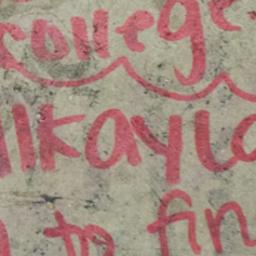 college
llkayla
to fin